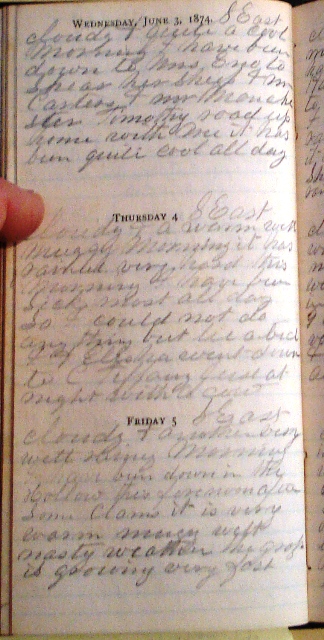 WEDNESDAY, JUNE 3, 1874. S East
cloudy & quite a cool
Morning I have been
down to Mrs. to
shear her sheep & Mr
Carter & Mr Manche
ster Timothy road up
home with me it has
bin quite cool all day
THURSDAY 4 S East
Cloudy & a warm wet
muggy Morning it has
rained very hard this
Morning I have bin
Sick most all day
so I could not do
any thing but lie abed
& Elisha went down
to C Tiffany just at
night with a
FRIDAY 5 S East
cloudy & another very
wett rainy Morning
I have bin down in the
Hollow this forenoon after
some Clams it is very
warm mugy wett
nasty weather the grass
is growing very fast